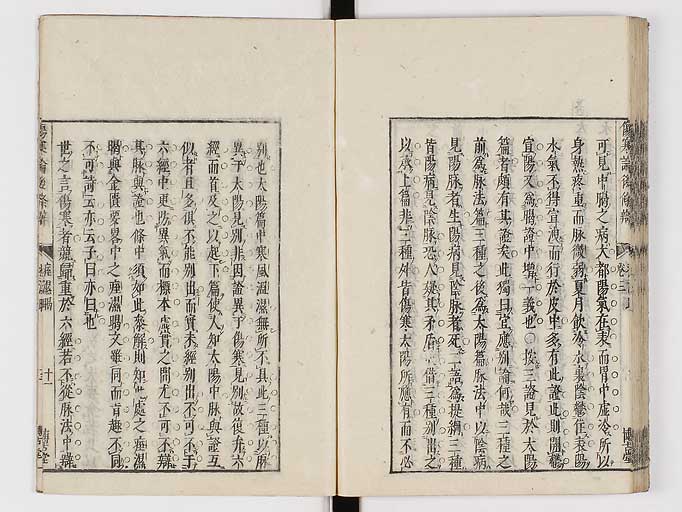 可見中暍之病大都陽氣在表而胃中虛冷所以
身熱疼重而脈微弱夏月飲冷水裏陰鬱住表陽
水氣不得宣洩而行於皮中多有此證此則開鬱
宜陽又為暍證中增一義也○按三證見於太陽
篇者頗有其證矣此獨曰宜應別論何哉三種之
前為脈法篇三種之後為太陽篇脈法中以陰病
見陽脈者生陽病見陰脈者死二語為提綱三種
皆陽病見陰脈恐人疑其矛盾借三種別出之
以承上篇非三種外皆傷寒太陽所應有而不必
別也太陽篇中寒風溫濕無所不具此三種以脈
異于太陽見別非因證異于傷寒見別故復弁六
經而首及之以起下篇使人知太陽中脈與證互
似者且多俱不能別出而實未經別出不可不于
六經中更防異氣而標本虛實之間尤不可不辯
其脈與證也條中須如此叅解則知此處之痙濕
暍與金匱要畧中之痙濕暍文雖同而言趣不同
不可訶云亦云子曰亦曰也
世之言傷寒者龍歸重於六經若不從脈法中辯
傷寒論後條辯
卷三
十一
博古堂